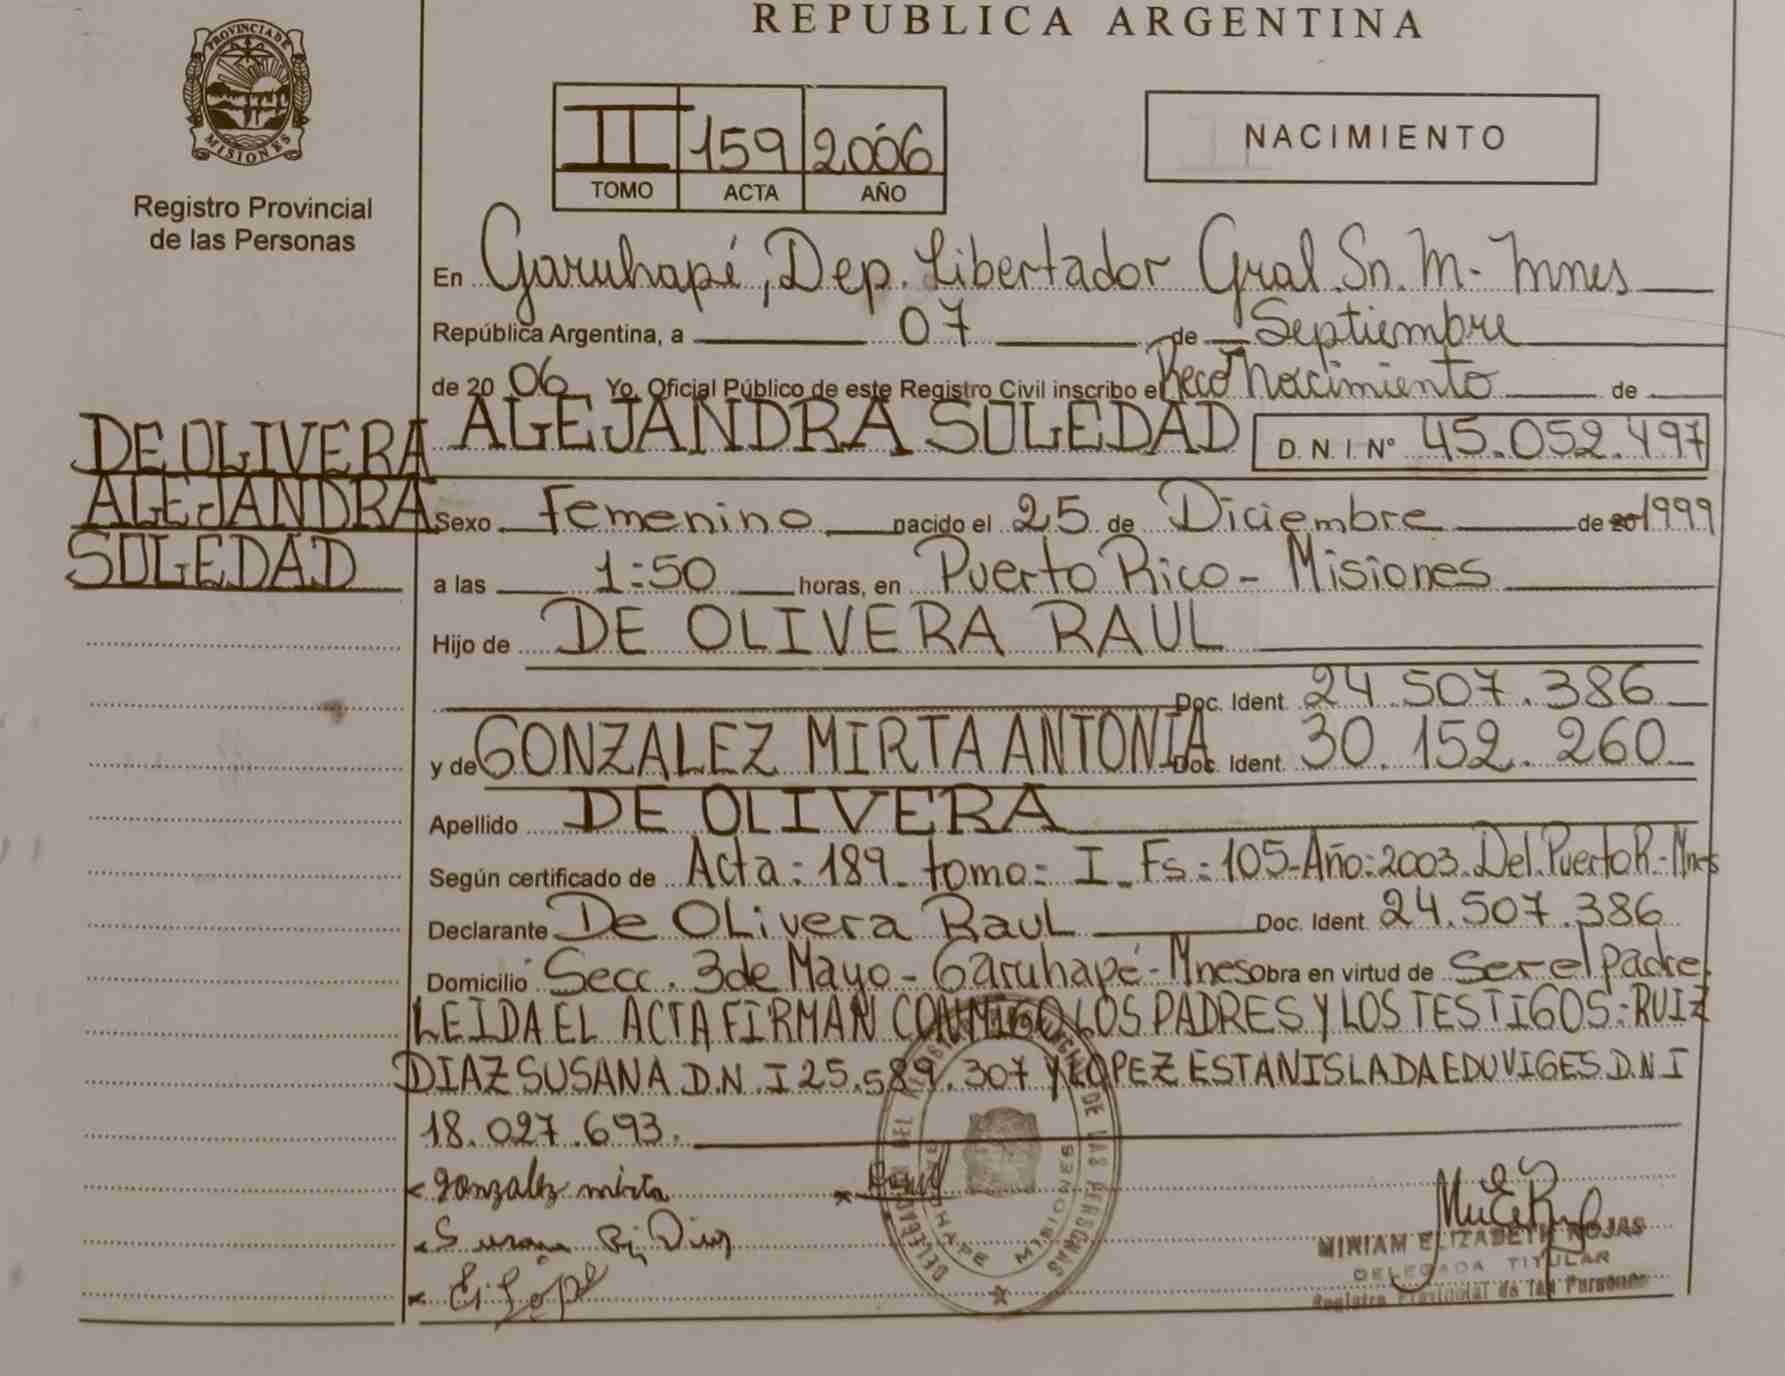 REPUBLICA ARGENTINA
PROVINCIA DE
MISIONES
Registro Provincial
de las Personas
II 159 2006
TOMO ACTA AÑO
NACIMIENTO
En Garuhapé, Dep. Libertador Gral. Sn. M - Mnes
República Argentina, a 07 de Septiembre
de 20 06 Yo, Oficial Público de este Registro Civil inscribo el Reco Nacimiento de
DE OLIVERA
ALEJANDRA
SOLEDAD
ALEJANDRA SOLEDAD D. N. I. Nº 45.052.497
Sexo Femenino nacido el 25 de Diciembre de 20 1999
a las 1:50 horas, en Puerto Rico - Misiones
Hijo de DE OLIVERA RAUL
Doc. Ident. 24.507.386
y de GONZALEZ MIRTA ANTONIA Doc. Ident. 30.152.260
Apellido DE OLIVERA
Según certificado de Acta: 189 - tomo: I - Fs: 105 - Año: 2003. Del. Puerto R. - Mnes
Declarante De OLivera Raul Doc. Ident. 24.507.386
Domicilio Secc. 3 de Mayo - Garuhapé - Mnes obra en virtud de ser el padre.
LEIDA EL ACTA FIRMAN CONMIGO LOS PADRES Y LOS TESTIGOS: RUIZ
DIAZ SUSANA D.N.I 25.589.307 Y LOPEZ ESTANISLADA EDUVIGES D.N.I
18.027.693.
x Gonzalez mirta x Raul
x Susana R Diaz
x E. Lope
DE LAS PERSONAS
MISIONES
MIRIAM ELIZABETH ROJAS
DELEGADA TITULAR
Registro Provincial de las Personas